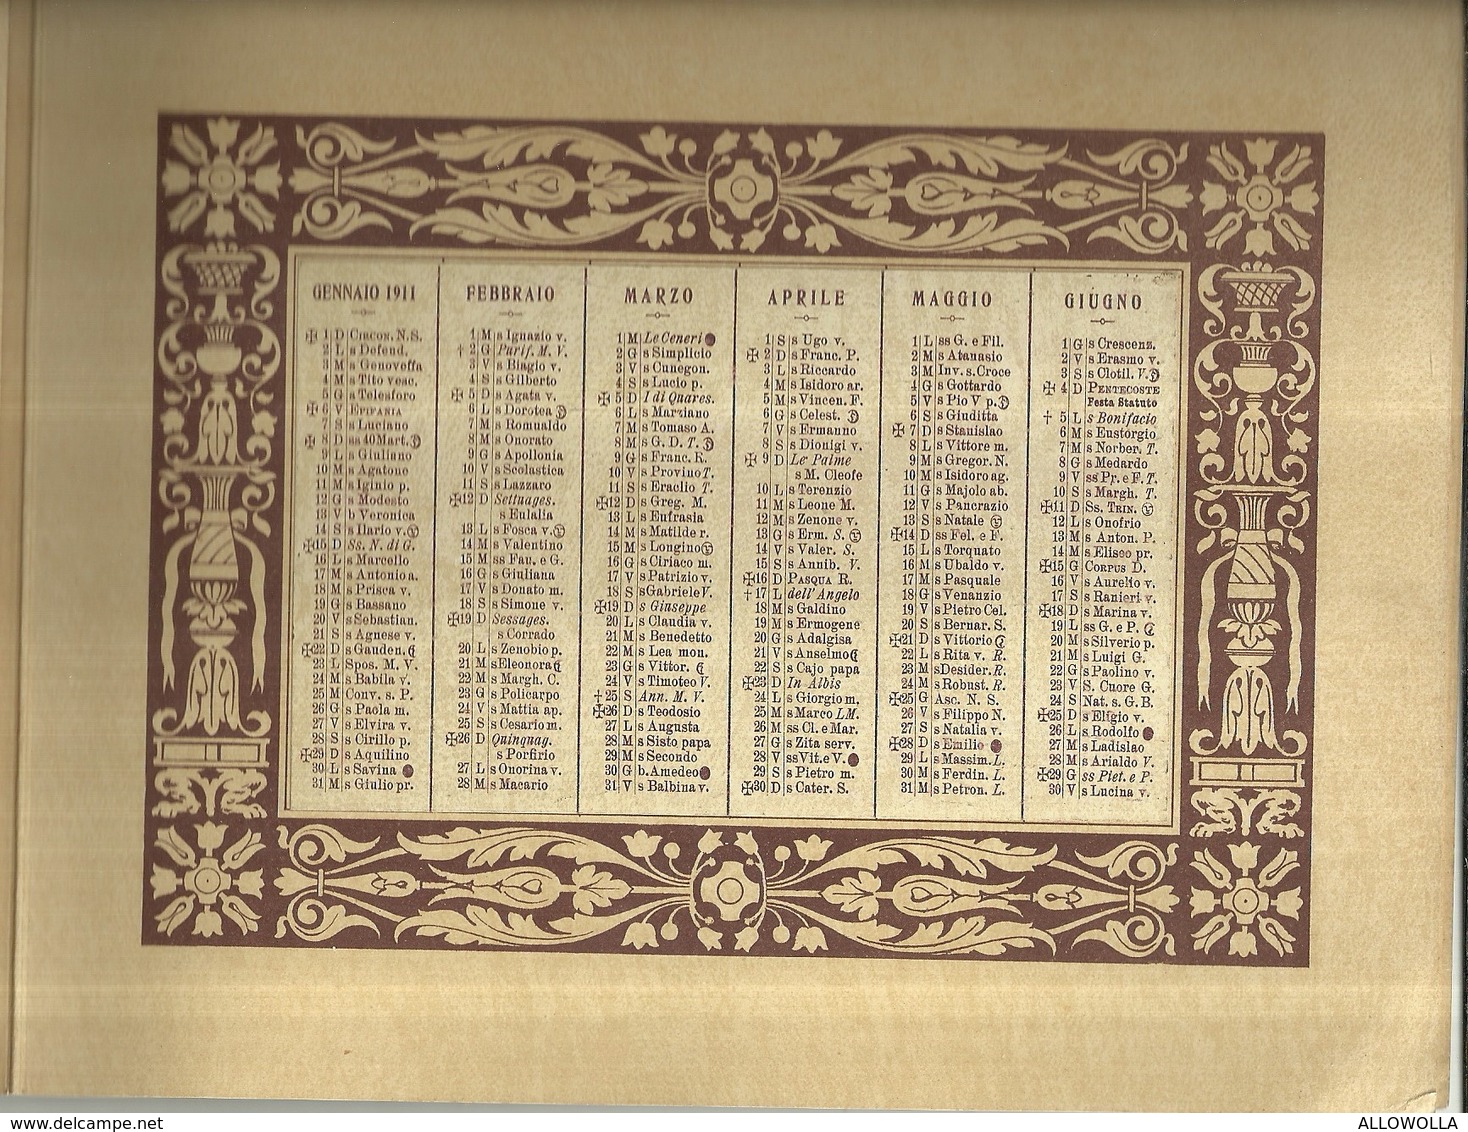 GENNAIO 1911
✠ 1 D Circon. N. S.
2 L s Defend.
3 M s Genoveffa
4 M s Tito vesc.
5 G s Telesforo
✠ 6 V Epifania
7 S s Luciano
✠ 8 D ss 40 Mart.
9 L s Giuliano
10 M s Agatone
11 M s Iginio p.
12 G s Modesto
13 V b Veronica
14 S s Ilario v.
✠15 D Ss. N. di G.
16 L s Marcello
17 M s Antonio a.
18 M s Prisca v.
19 G s Bassano
20 V s Sebastian.
21 S s Agnese v.
✠22 D s Gauden.
23 L Spos. M. V.
24 M s Babila v.
25 M Conv. s. P.
26 G s Paola m.
27 V s Elvira v.
28 S s Cirillo p.
✠29 D s Aquilino
30 L s Savina
31 M s Giulio pr.
FEBBRAIO
1 M s Ignazio v.
† 2 G Purif. M. V.
3 V s Biagio v.
4 S s Gilberto
✠ 5 D s Agata v.
6 L s Dorotea
7 M s Romualdo
8 M s Onorato
9 G s Apollonia
10 V s Scolastica
11 S s Lazzaro
✠12 D Settuages.
s Eulalia
13 L s Fosca v.
14 M s Valentino
15 M ss Fau. e G.
16 G s Giuliana
17 V s Donato m.
18 S s Simone v.
✠19 D Sessages.
s Corrado
20 L s Zenobio p.
21 M s Eleonora
22 M s Margh. C.
23 G s Policarpo
24 V s Mattia ap.
25 S s Cesario m.
✠26 D Quinquag.
s Porfirio
27 L s Onorina v.
28 M s Macario
MARZO
1 M Le Ceneri
2 G s Simplicio
3 V s Cunegon.
4 S s Lucio p.
✠ 5 D I di Quares.
6 L s Marziano
7 M s Tomaso A.
8 M s G. D. T.
9 G s Franc. R.
10 V s Provino T.
11 S s Eraclio T.
✠12 D s Greg. M.
13 L s Eufrasia
14 M s Matilde r.
15 M s Longino
16 G s Ciriaco m.
17 V s Patrizio v.
18 S s Gabriele V.
✠19 D s Giuseppe
20 L s Claudia v.
21 M s Benedetto
22 M s Lea mon.
23 G s Vittor.
24 V s Timoteo V.
†25 S Ann. M. V.
✠26 D s Teodosio
27 L s Augusta
28 M s Sisto papa
29 M s Secondo
30 G b. Amedeo
31 V s Balbina v.
APRILE
1 S s Ugo v.
✠ 2 D s Franc. P.
3 L s Riccardo
4 M s Isidoro ar.
5 M s Vincen. F.
6 G s Celest.
7 V s Ermanno
8 S s Dionigi v.
✠ 9 D Le Palme
s M. Cleofe
10 L s Terenzio
11 M s Leone M.
12 M s Zenone v.
13 G s Erm. S.
14 V s Valer. S.
15 S s Annib. V.
✠16 D Pasqua R.
†17 L dell'Angelo
18 M s Galdino
19 M s Ermogene
20 G s Adalgisa
21 V s Anselmo
22 S s Cajo papa
✠23 D In Albis
24 L s Giorgio m.
25 M s Marco LM.
26 M ss Cl. e Mar.
27 G s Zita serv.
28 V ss Vit. e V.
29 S s Pietro m.
✠30 D s Cater. S.
MAGGIO
1 L ss G. e Fil.
2 M s Atanasio
3 M Inv. s. Croce
4 G s Gottardo
5 V s Pio V p.
6 S s Giuditta
✠ 7 D s Stanislao
8 L s Vittore m.
9 M s Gregor. N.
10 M s Isidoro ag.
11 G s Majolo ab.
12 V s Pancrazio
13 S s Natale
✠14 D ss Fel. e F.
15 L s Torquato
16 M s Ubaldo v.
17 M s Pasquale
18 G s Venanzio
19 V s Pietro Cel.
20 S s Bernar. S.
✠21 D s Vittorio
22 L s Rita v. R.
23 M s Desider. R.
24 M s Robust. R.
✠25 G Asc. N. S.
26 V s Filippo N.
27 S s Natalia v.
✠28 D s Emilio
29 L s Massim. L.
30 M s Ferdin. L.
31 M s Petron. L.
GIUGNO
1 G s Crescenz.
2 V s Erasmo v.
3 S s Clotil. V.
✠ 4 D Pentecoste
Festa Statuto
† 5 L s Bonifacio
6 M s Eustorgio
7 M s Norber. T.
8 G s Medardo
9 V ss Pr. e F. T.
10 S s Margh. T.
✠11 D Ss. Trin.
12 L s Onofrio
13 M s Anton. P.
14 M s Eliseo pr.
✠15 G Corpus D.
16 V s Aurelio v.
17 S s Ranieri v.
✠18 D s Marina v.
19 L ss G. e P.
20 M s Silverio p.
21 M s Luigi G.
22 G s Paolino v.
23 V S. Cuore G.
24 S Nat. s. G. B.
✠25 D s Eligio v.
26 L s Rodolfo
27 M s Ladislao
28 M s Arialdo V.
✠29 G ss Piet. e P.
30 V s Lucina v.
https://www.delcampe.net
ALLOWOLLA